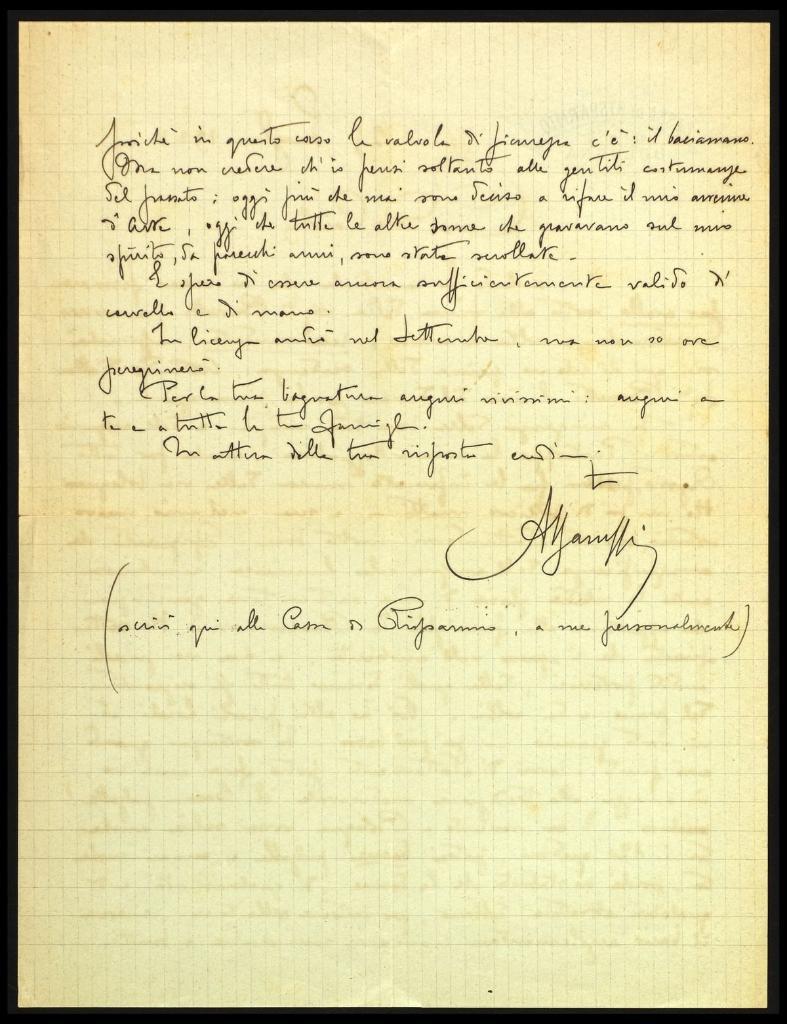 poiché in questo caso la valvola di sicurezza c'è: il baciamano.
Ma non credere ch'io pensi soltanto alle gentili costumanze
del passato; oggi più che mai sono deciso a rifare il mio
d'arte, oggi che tutte le altre some che gravavano sul mio
spirito, da parecchi anni, sono state scrollate.
E spero di essere ancora sufficientemente valido di
cervello e di mano.
In licenza andrò nel Settembre, ma non so ove
peregrinerò.
Per la tua bagnatura auguri vivissimi: auguri a
te e a tutta la tua famiglia.
In attesa della tua risposta credimi
(scrivi qui alla Cassa di Risparmio, a me personalmente)